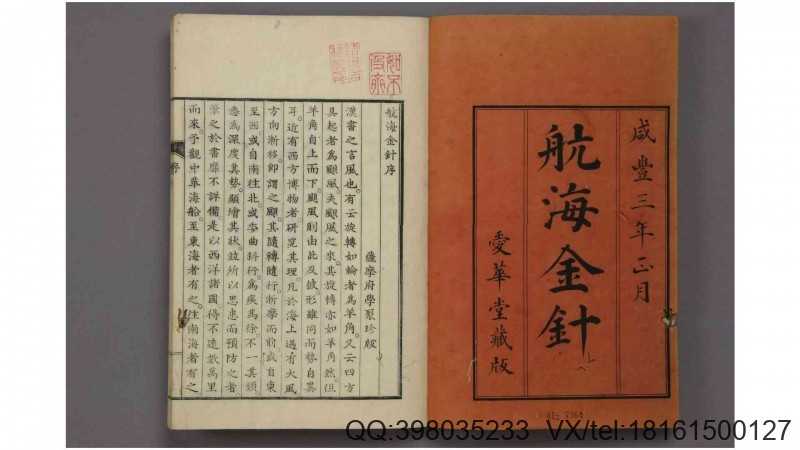 咸豐三年正月
航海金針
上
愛華堂藏版
航海金針序
薩摩府學聚珍版
漢書之言風也。有云旋轉如輪者為羊角。又云四方
具起者為颶風。夫颶風之來。其旋轉亦如羊角然。但
羊角自上而下。颶風則由此及彼。形雖同而勢自異
耳。近有西方博物者研究其理。凡於海上遇有大風
方向漸移。卽謂之颶。其隨轉隨行。漸而前。或自東
至西。或自南往北。或委曲斜行。為疾為徐。不一其類
悉為深度其勢。顯繪其狀。玆所以思患而預防之者
筆之於書。靡不詳備。是以西洋諸國得不遠數萬里
而來。予觀中華海船。至東海者有之。往南海者有之
序
QQ:398035233 VX/tel:18161500127